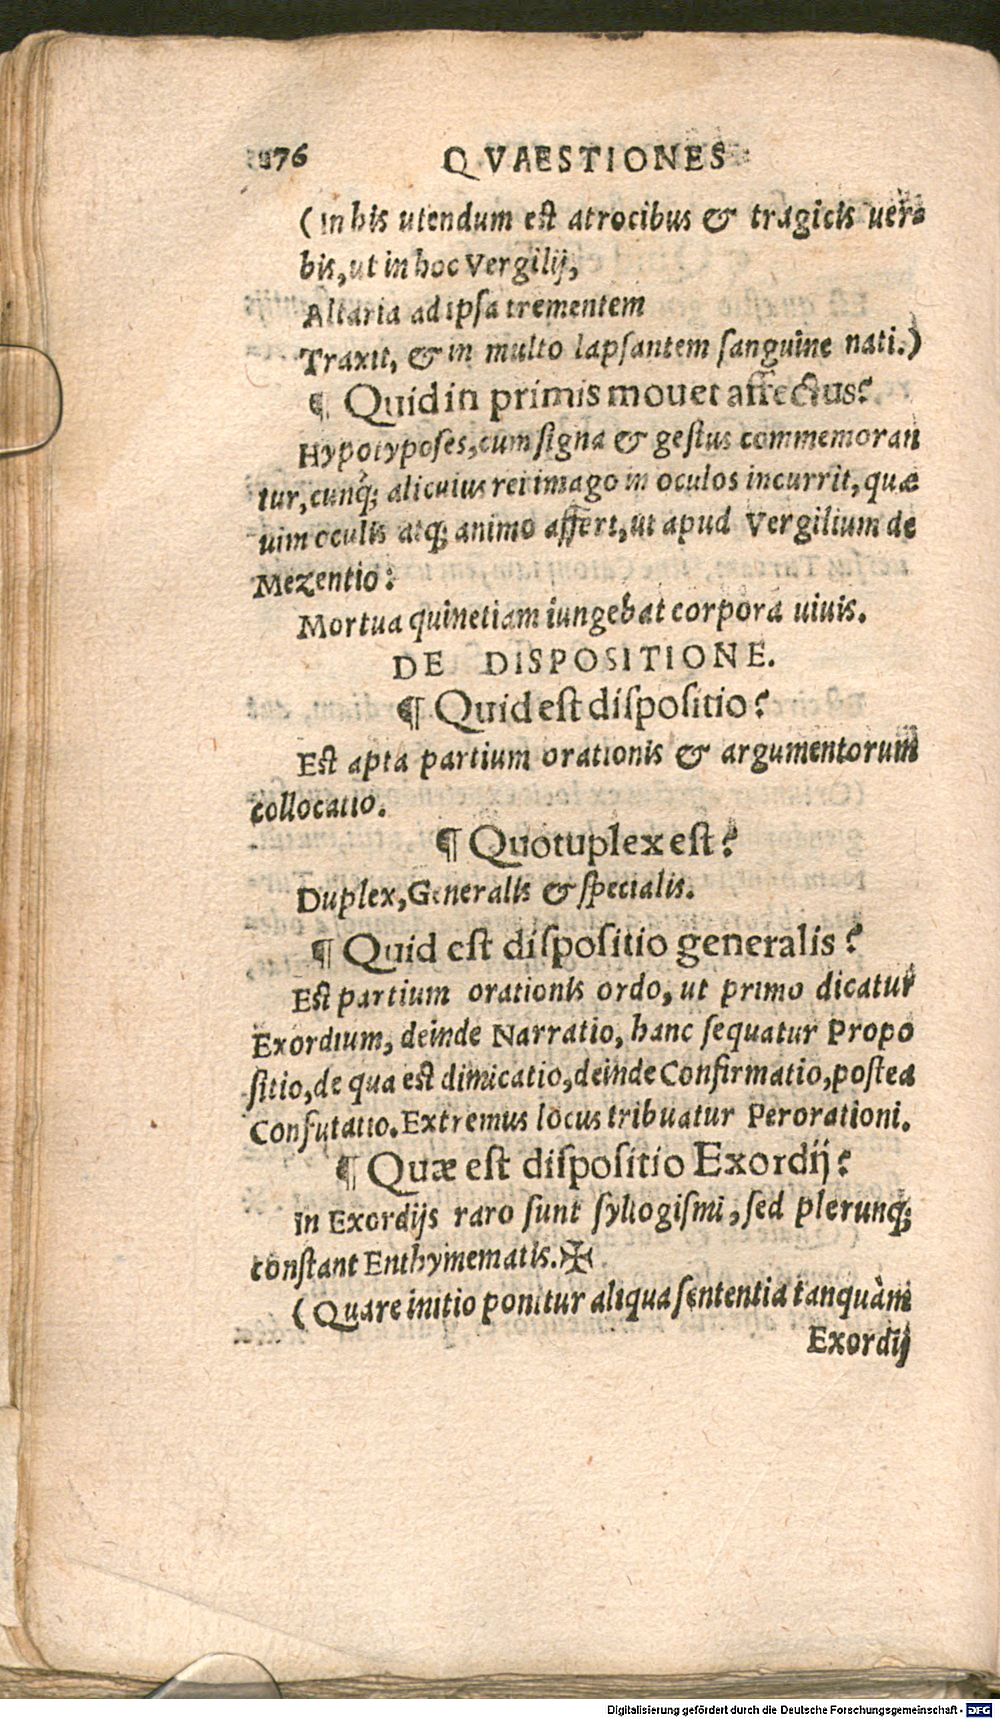 76 QVAESTIONES
(In his utendum est atrocibus & tragicis uer-
bis, ut in hoc Vergilij,
Altaria ad ipsa trementem
Traxit, & in multo lapsantem sanguine nati.)
¶ Quid in primis mouet affectus?
Hypotyposes, cum signa & gestus commemoran
tur, cunq; alicuius rei imago in oculos incurrit, quæ
uim oculis atq; animo affert, ut apud Vergilium de
Mezentio:
Mortua quinetiam iungebat corpora uiuis.
DE DISPOSITIONE.
¶ Quid est dispositio?
Est apta partium orationis & argumentorum
collocatio.
¶ Quotuplex est?
Duplex, Generalis & specialis.
¶ Quid est dispositio generalis?
Est partium orationis ordo, ut primo dicatur
Exordium, deinde Narratio, hanc sequatur Propo
sitio, de qua est dimicatio, deinde Confirmatio, postea
Confutatio. Extremus locus tribuatur Perorationi.
¶ Quæ est dispositio Exordij?
In Exordijs raro sunt syllogismi, sed plerunq;
constant Enthymematis.✠
(Quare initio ponitur aliqua sententia tanquàm
Exordij
Digitalisierung gefördert durch die Deutsche Forschungsgemeinschaft - DFG